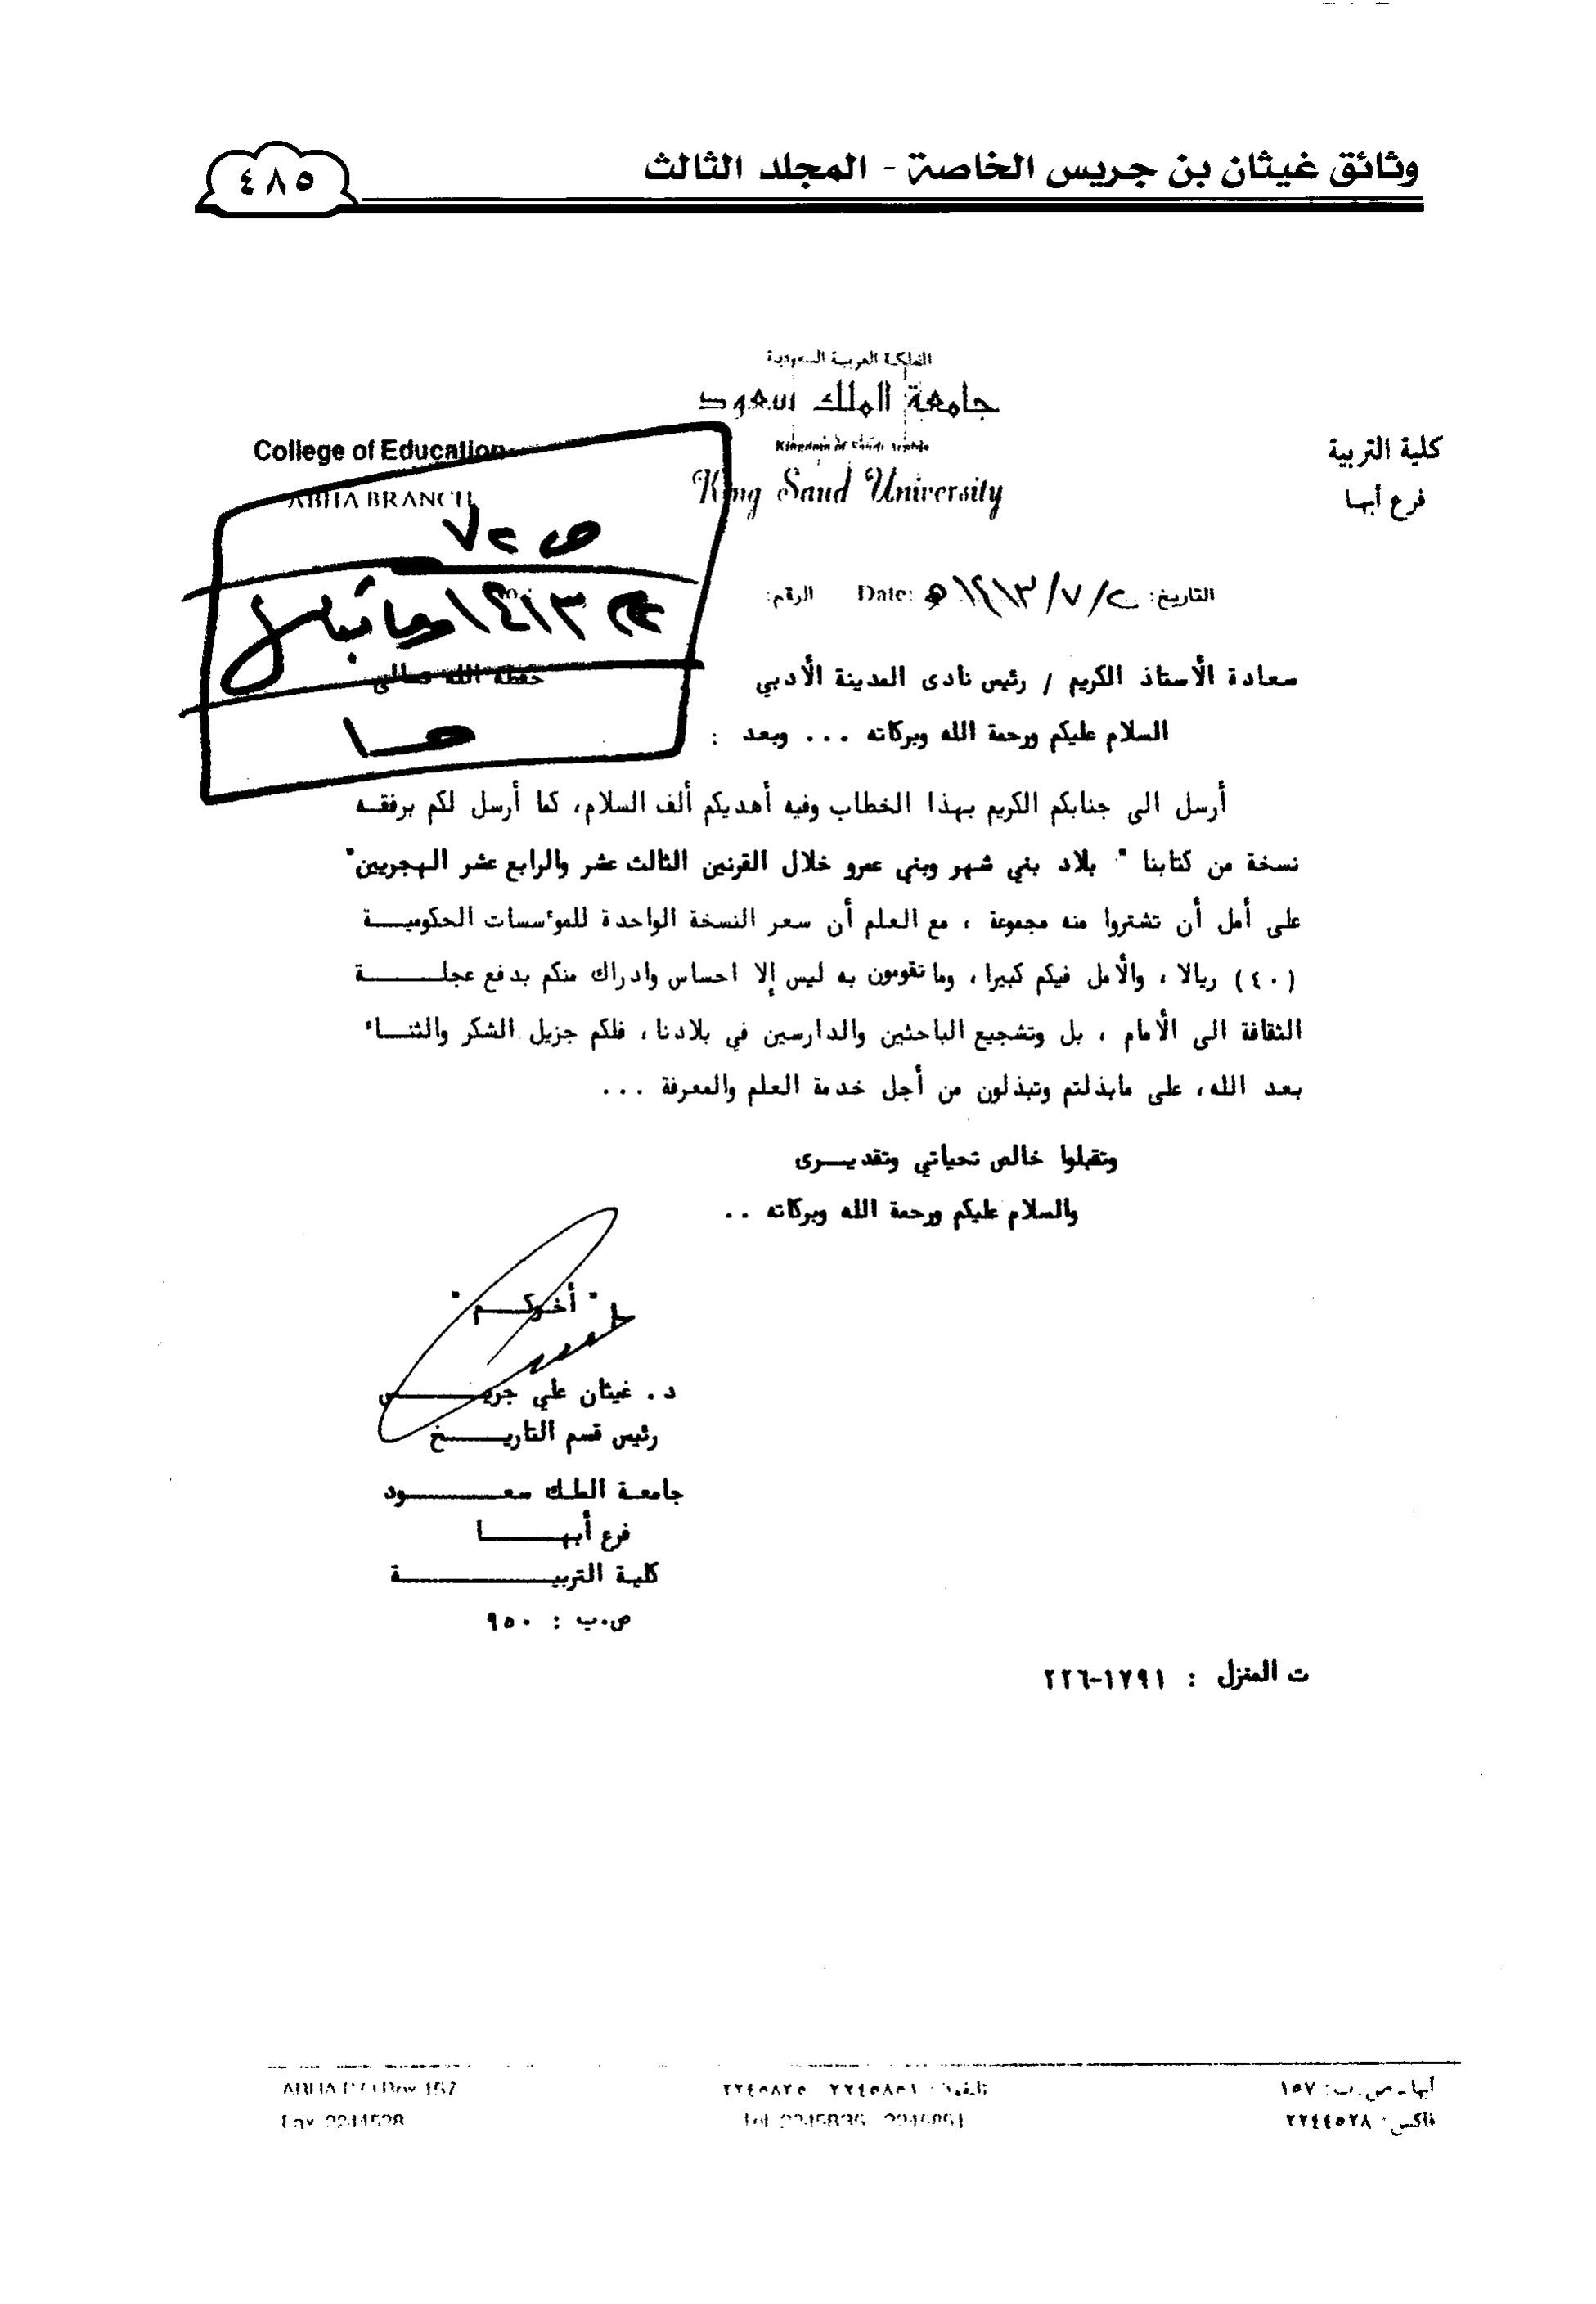 وثائق غيثان بن جريس الخاصة - المجلد الثالث
٤٨٥
المملكة العربية السعودية
جامعة الملك سعود
Kingdom of Saudi Arabia
King Saud University
كلية التربية
فرع أبها
College of Education
ABHA BRANCH
ص ٢٧
١٤١٣
التاريخ: ٢/٧/١٤١٣ه Date: الرقم:
سعادة الأستاذ الكريم / رئيس نادى المدينة الأدبي حفظه الله تعالى
السلام عليكم ورحمة الله وبركاته ... وبعد :
أرسل الى جنابكم الكريم بهذا الخطاب وفيه أهديكم ألف السلام، كما أرسل لكم برفقـه
نسخة من كتابنا " بلاد بني شهر وبني عمرو خلال القرنين الثالث عشر والرابع عشر الهجريين"
على أمل أن تشتروا منه مجموعة ، مع العلم أن سعر النسخة الواحدة للمؤسسات الحكوميـــة
(٤٠) ريالا ، والأمل فيكم كبيرا ، وما تقومون به ليس إلا احساس وادراك منكم بدفع عجلـــــة
الثقافة الى الأمام ، بل وتشجيع الباحثين والدارسين في بلادنا ، فلكم جزيل الشكر والثنـــاء
بعد الله ، على مابذلتم وتبذلون من أجل خدمة العلم والمعرفة ...
وتقبلوا خالص تحياتي وتقديـــرى
والسلام عليكم ورحمة الله وبركاته ..
" أخوكــــم "
د . غيثان علي جريـــــــس
رئيس قسم التاريـــــخ
جامعة الملك سعـــــــود
فرع أبهـــــــا
كلية التربيـــــــــــة
ص.ب : ٩٥٠
ت المنزل : ١٧٩١-٢٢٦
أبها ـ ص. ب: ١٥٧
فاكس: ٢٢٤٤٥٢٨